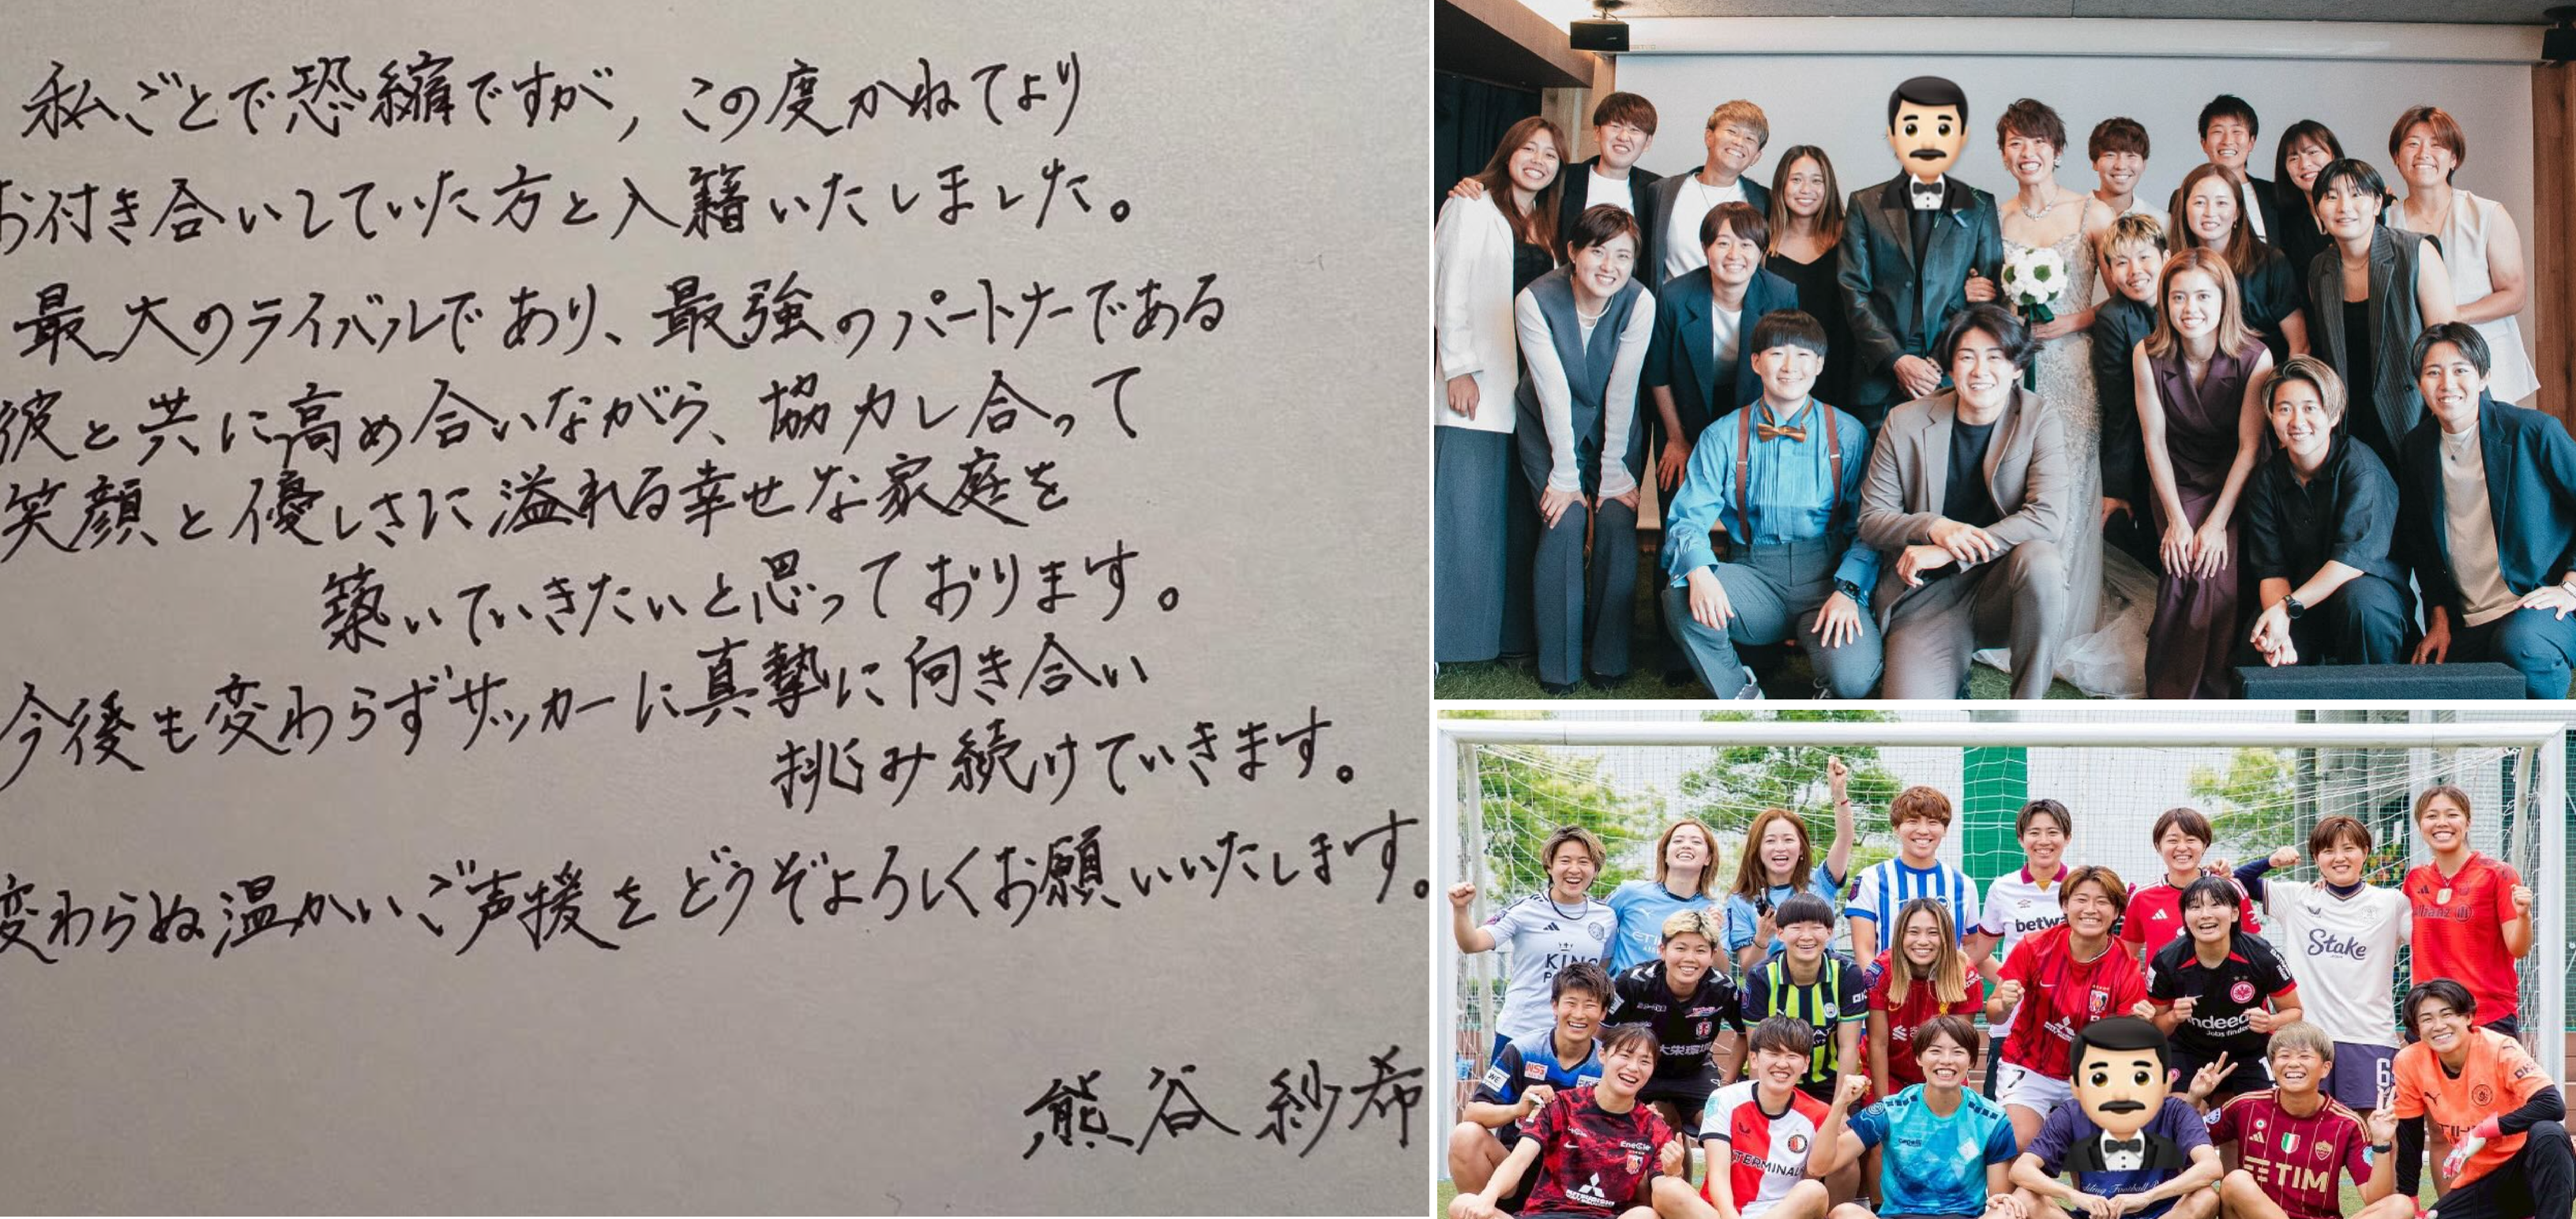 私ごとで恐縮ですが、この度かねてより
お付き合いしていた方と入籍いたしました。
最大のライバルであり、最強のパートナーである
彼と共に高め合いながら、協力し合って
笑顔と優しさに溢れる幸せな家庭を
築いていきたいと思っております。
今後も変わらずサッカーに真摯に向き合い
挑み続けていきます。
変わらぬ温かいご声援をどうぞよろしくお願いいたします。
熊谷 紗希
KING
betw
Stake
大栄環境
indeed
TERMINAL
MITSUBISHI
TIM